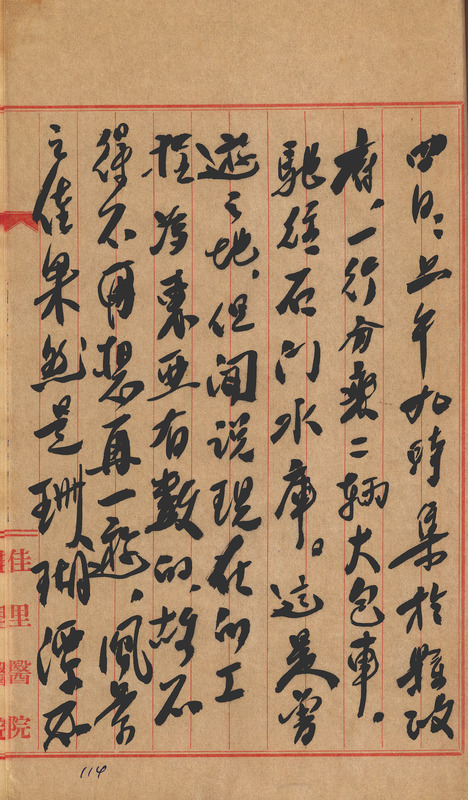 四日、上午九時集於縣政
府，一行分乘二輛大包車。
馳往石門水庫。這是曾
遊之地，但聞說現在的工
程為東亞有數的，故不
得不再想再一遊，風景
之佳果然是珊瑚潭不
佳里醫院
114